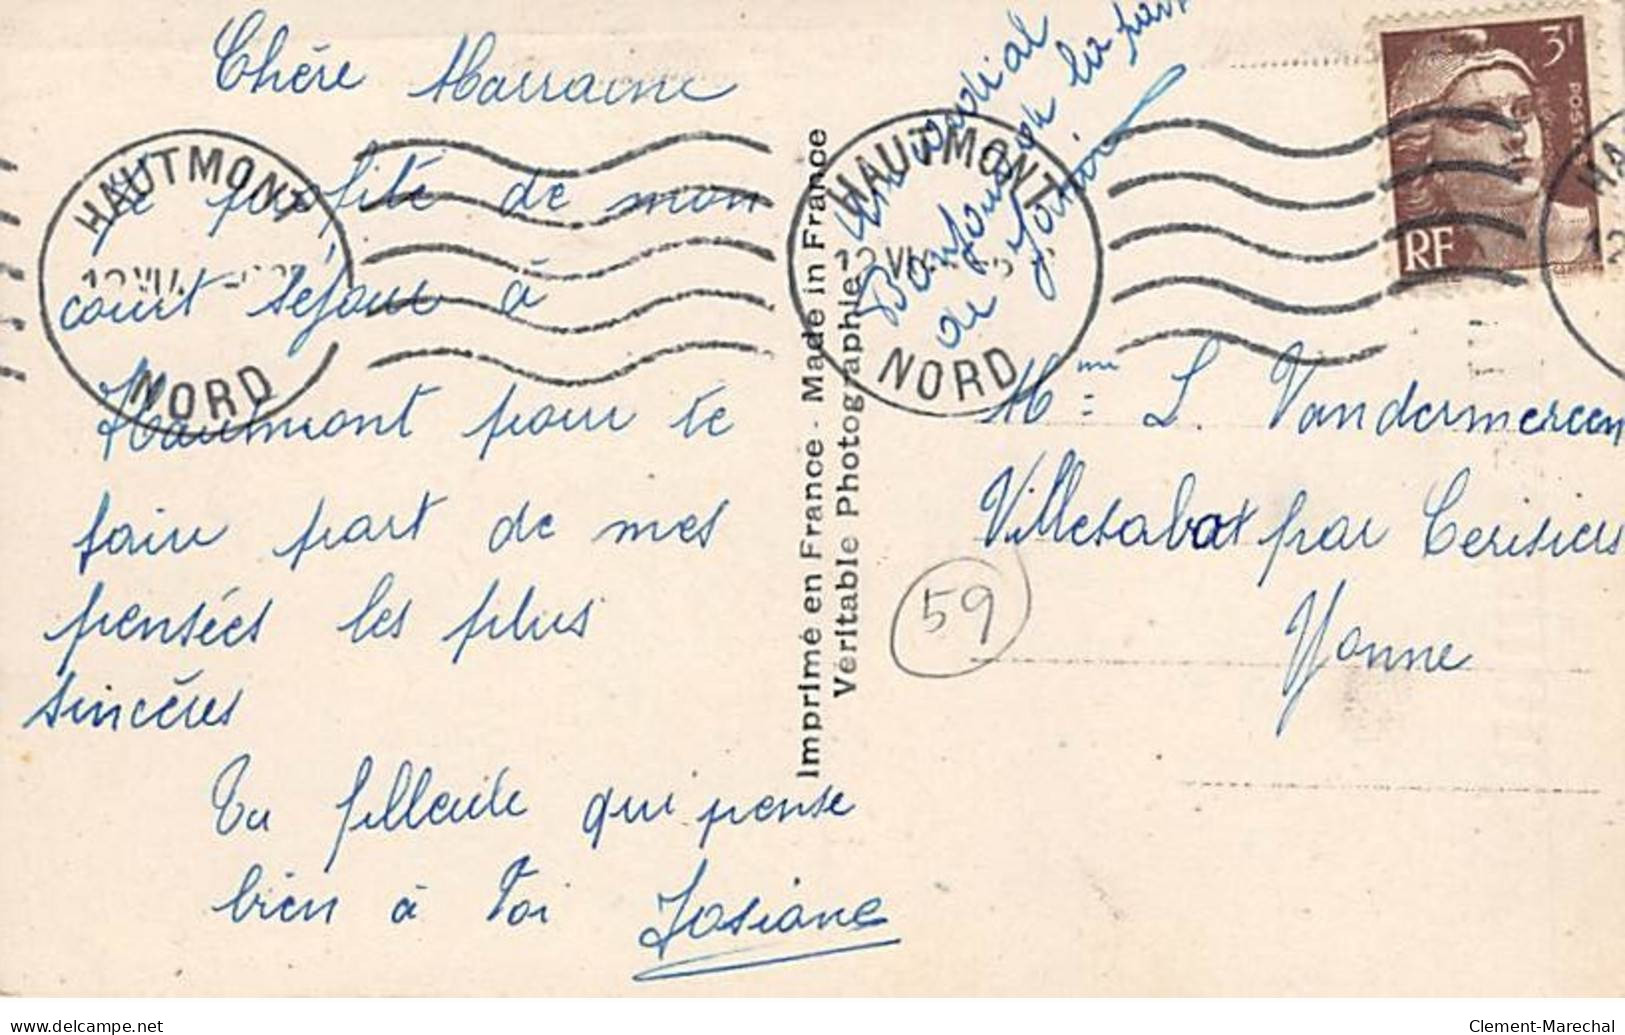 Chère Marraine
Je profite de mon
court séjour à
Hautmont pour te
faire part de mes
pensées les plus
sincères
Ta filleule qui pense
bien à toi Josiane
Imprimé en France - Made in France
Véritable Photographie
HAUTMONT
NORD
HAUTMONT
NORD
cordial
Bonjour
de
3F
POSTES
RF
Mme L. Vandermereen
Villechabot par Cerisiers
Yonne
59
www.delcampe.net
Clement-Marechal